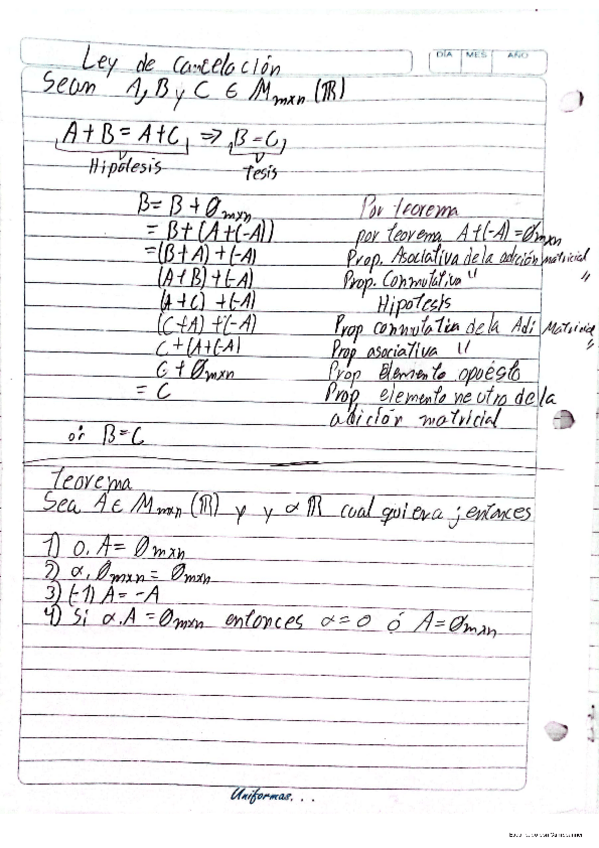 DÍA MES AÑO
Ley de Cancelación
Sean A, B y C ∈ Mmxn (ℝ)
A+B = A+C ⇒ B=C
Hipótesis Tesis
B = B + Ømxn Por teorema
= B+(A+(-A)) por teorema A+(-A)=Ømxn
=(B+A) +(-A) Prop. Asociativa de la adición matricial
(A+B) +(-A) Prop. Conmutativa "
(A+C) +(-A) Hipotesis
(C+A) +(-A) Prop conmutativa de la Adi Matricial
C+(A+(-A) Prop asociativa "
C + Ømxn Prop Elemento opuésto
= C Prop elemento neutro de la
adición matricial
B=C
Teorema
Sea A ∈ Mmxn (ℝ) y y α ℝ cualquiera ; entonces
1) 0. A = Ømxn
2) α. Ømxn = Ømxn
3) (-1) A = -A
4) Si α.A = Ømxn entonces α=0 ó A=Ømxn
Uniformas...